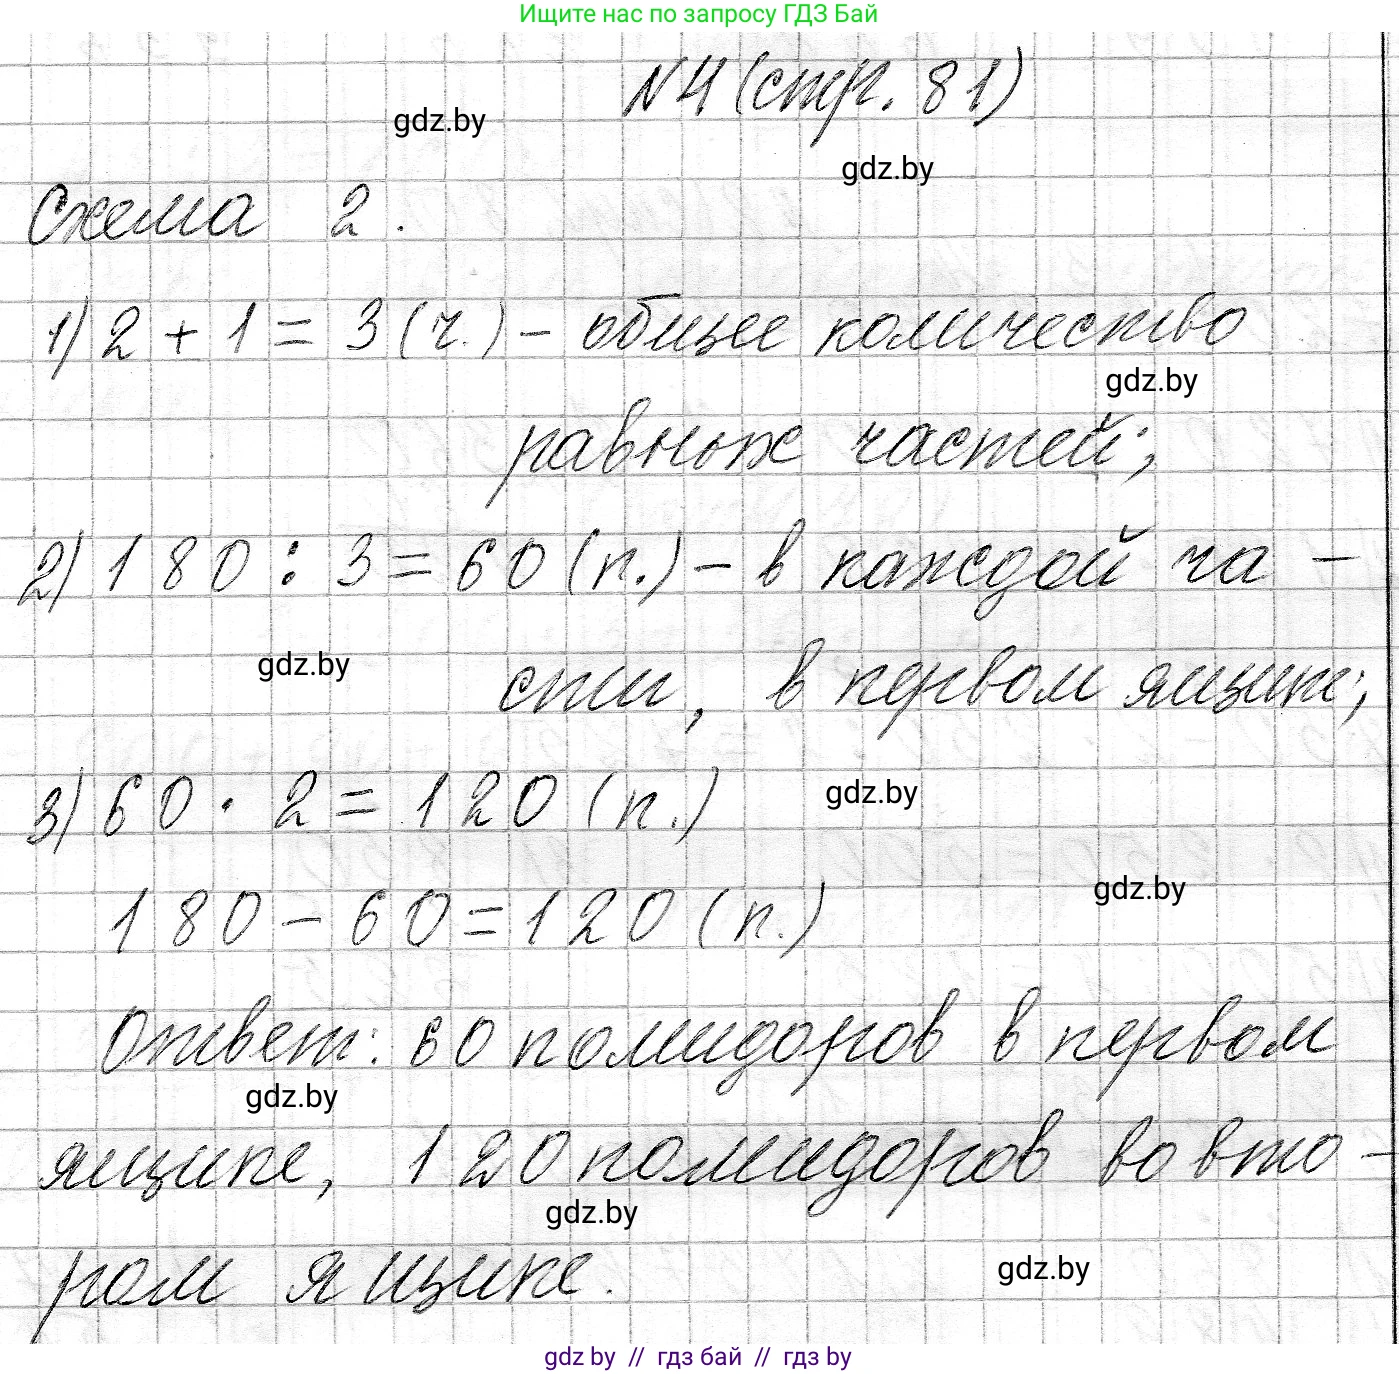 Ищите нас по запросу ГДЗ Бай
N4 (стр. 81)
gdz.by
gdz.by
Схема 2.
1) 2 + 1 = 3 (ч.) - общее количество
gdz.by
равных частей;
2) 180 : 3 = 60 (п.) - в каждой ча -
gdz.by
сти, в первом ящике;
3) 60 · 2 = 120 (п.)
gdz.by
180 - 60 = 120 (п.)
gdz.by
Ответ: 60 помидоров в первом
gdz.by
ящике, 120 помидоров во вто -
gdz.by
ром ящике.
gdz.by
gdz by // гдз бай // гдз by